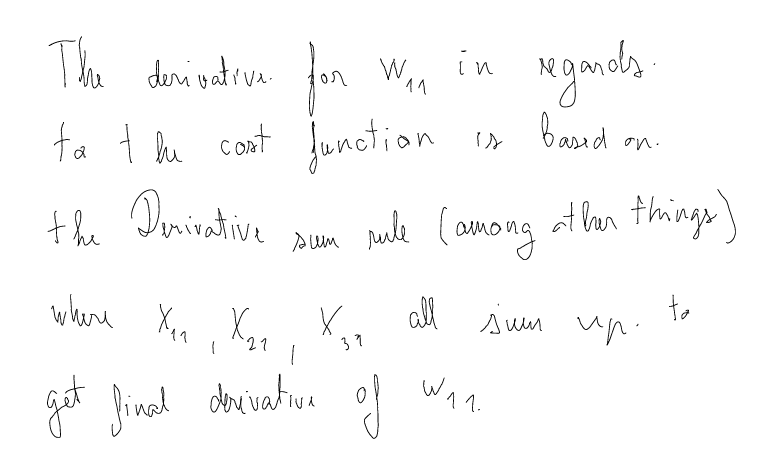 The derivative for W₁₁ in regards
to the cost function is based on
the Derivative sum rule (among other things)
where X₁₁, X₂₁, X₃₁ all sum up to
get final derivative of W₁₁.